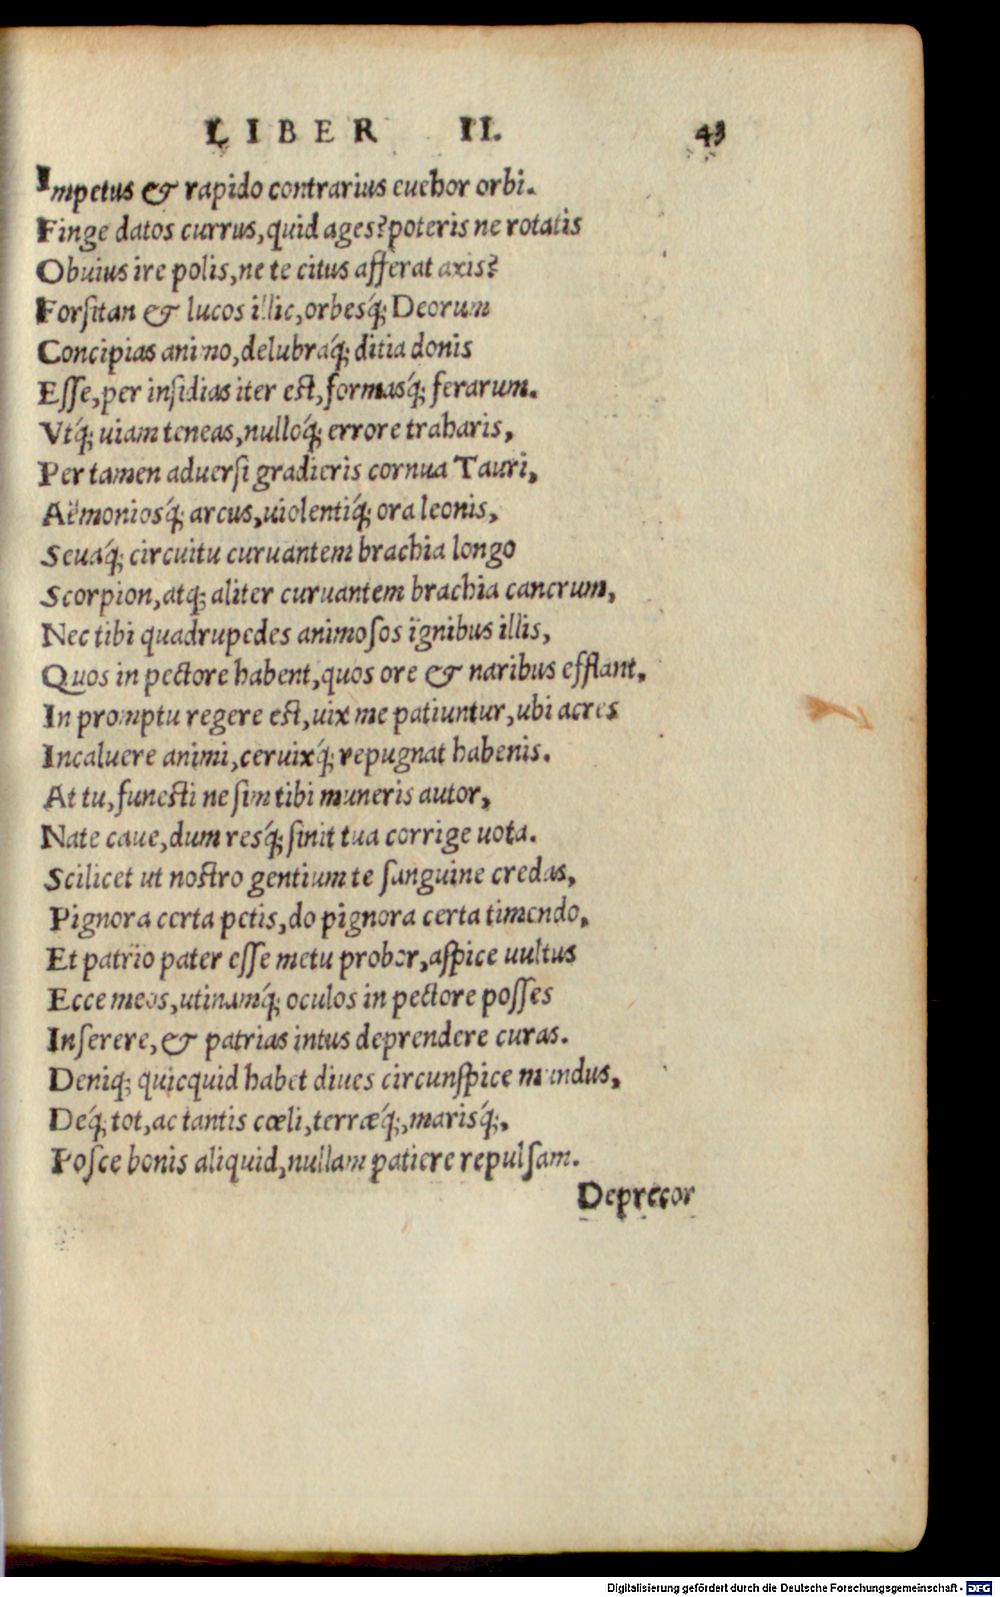 LIBER II. 43
Impetus & rapido contrarius euehor orbi.
Finge datos currus, quid ages? poteris ne rotatis
Obuius ire polis, ne te citus afferat axis?
Forſitan & lucos illic, orbesq́; Deorum
Concipias animo, delubraq́; ditia donis
Eſſe, per inſidias iter est, formasq́; ferarum.
Vtq́; uiam teneas, nulloq́; errore traharis,
Per tamen aduerſi gradieris cornua Tauri,
Aëmoniosq́; arcus, uiolentiq́; ora leonis,
Seuaq́; circuitu curuantem brachia longo
Scorpion, atq; aliter curuantem brachia cancrum,
Nec tibi quadrupedes animoſos ignibus illis,
Quos in pectore habent, quos ore & naribus efflant,
In promptu regere est, uix me patiuntur, ubi acres
Incaluere animi, ceruixq́; repugnat habenis.
At tu, funesti ne ſim tibi muneris autor,
Nate caue, dum resq́; ſinit tua corrige uota.
Scilicet ut nostro gentium te ſanguine credas,
Pignora certa petis, do pignora certa timendo,
Et patrio pater eſſe metu probor, aſpice uultus
Ecce meos, utinamq́; oculos in pectore poſſes
Inſerere, & patrias intus deprendere curas.
Deniq; quicquid habet diues circunſpice mundus,
Deq́; tot, ac tantis cœli, terræq́;, marisq́;,
Poſce bonis aliquid, nullam patiere repulſam.
Deprecor
Digitalisierung gefördert durch die Deutsche Forschungsgemeinschaft - DFG